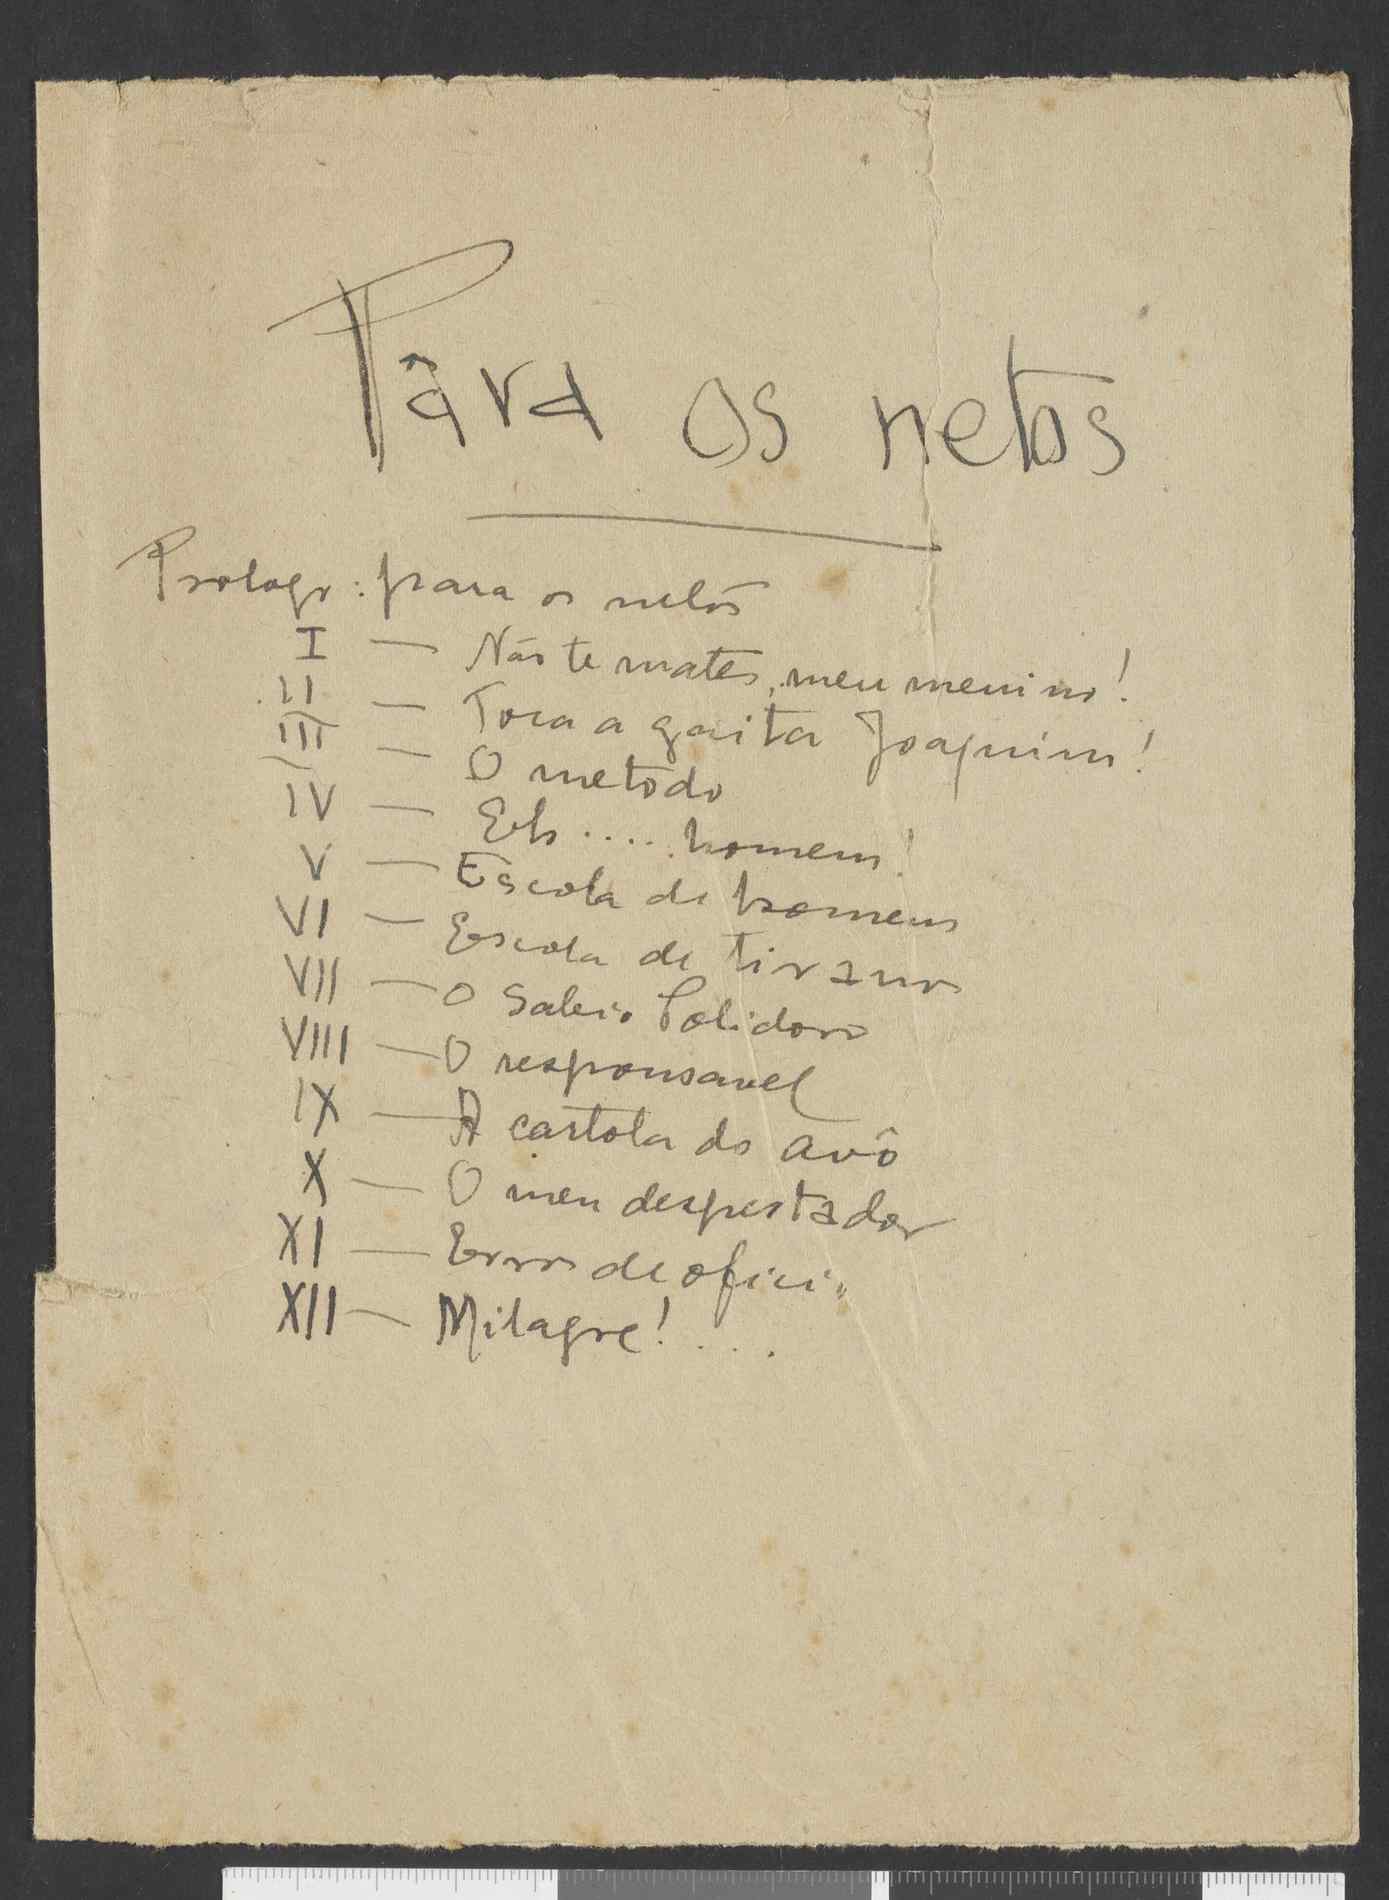 Pâra os netos
Prologo: para os netos
I — Não te mates, meu menino!
II — Toca a gaita Joaquim!
III — O metodo
IV — Eh .... homem!
V — Escola de homens
VI — Escola de tiranos
VII — O Sabio Polidoro
VIII — O responsavel
IX — A cartola do avô
X — O meu despertador
XI — Erros de oficio
XII — Milagre! ...